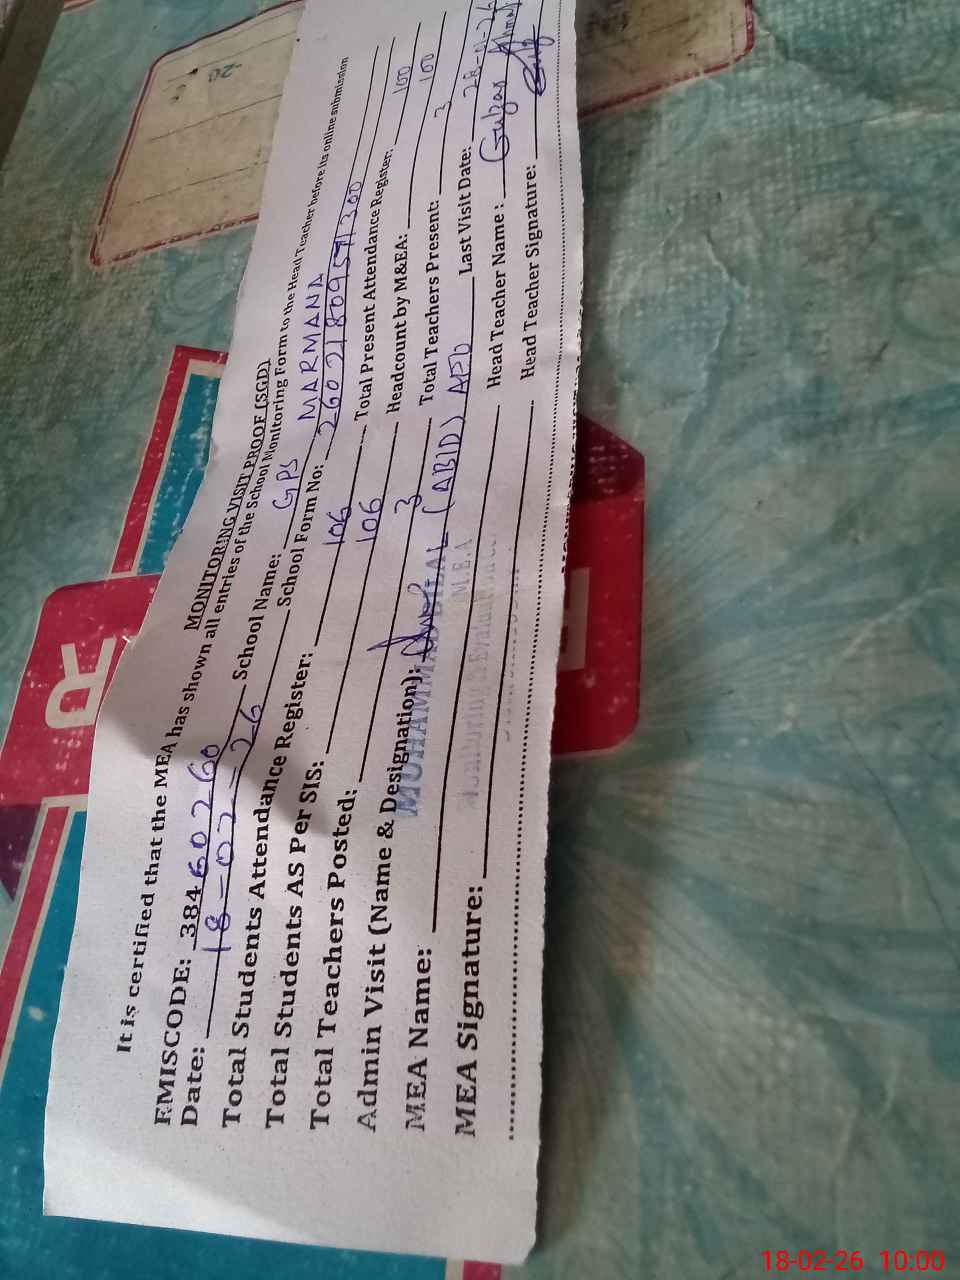 MONITORING VISIT PROOF (SGD)
It is certified that the MEA has shown all entries of the School Monitoring Form to the Head Teacher before its online submission
EMISCODE: 38460260 School Name: GPS MARMANA
Date: 18-02-26 School Form No: 26021809571300
Total Students Attendance Register: 106 Total Present Attendance Register: 100
Total Students AS Per SIS: 106 Headcount by M&EA: 100
Total Teachers Posted: 3 Total Teachers Present: 3
Admin Visit (Name & Designation): (ABID) AEO Last Visit Date: 28-01-26
MEA Name: MUHAMMAD BILAL Head Teacher Name: Gulzar Ahmad
M.E.A
MEA Signature: Monitoring & Evaluation Head Teacher Signature:
R
E
18-02-26 10:00